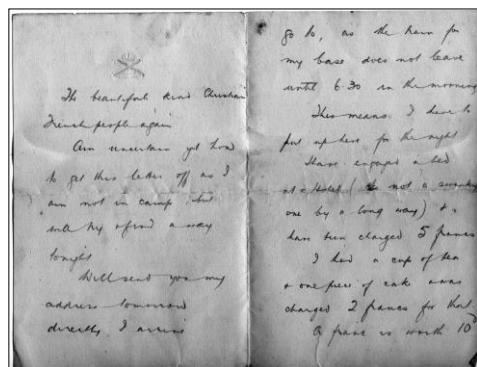 The beautiful kind Christian
French people again
Am uncertain yet how
to get this letter off as I
am not in camp, but
will try & find a way
tonight
Will send you my
address tomorrow
directly I arrive
go to, as the train for
my base does not leave
until 6.30 in the morning
This means I have to
put up here for the night
Have engaged a bed
at a Hotel ( not a swanky
one by a long way) &
have been charged 5 francs
I had a cup of tea
& one piece of cake & was
charged 2 francs for that.
A franc is worth 10d